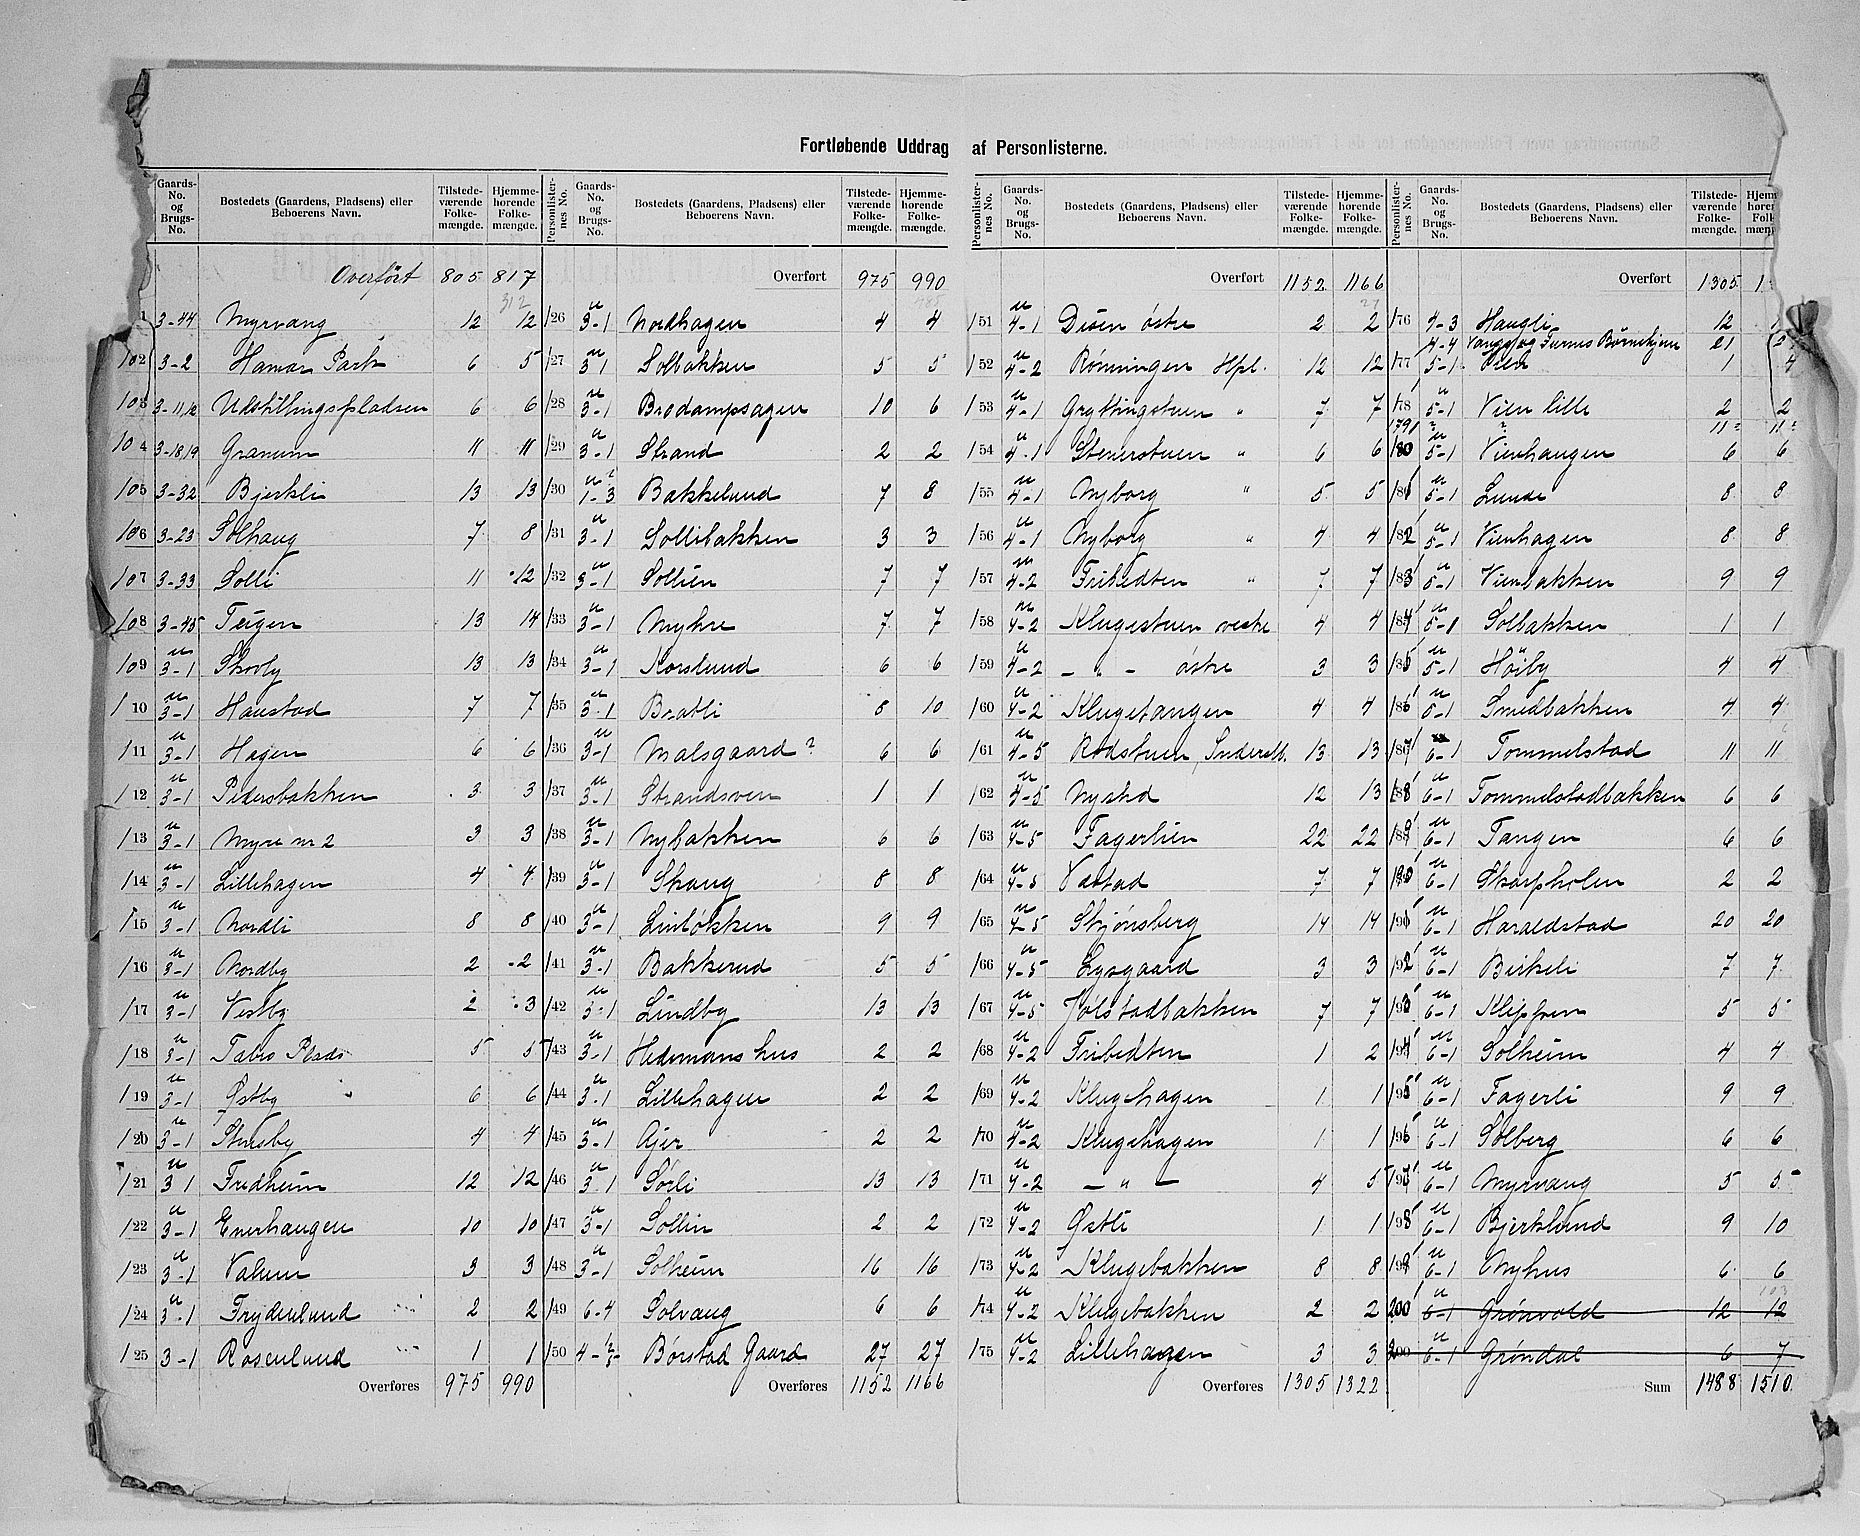 Fortløbende Uddrag af Personlisterne.
Gaards-No. og Brugs-No. | Bostedets (Gaardens, Pladsens) eller Beboerens Navn. | Tilstedeværende Folkemængde. | Hjemmehørende Folkemængde.
Overført 805 817
312
1 3-44 Myrvang 12 12
102 3-2 Hamar Park 6 5
103 3-11,12 Udstillingspladsen 6 6
104 3-18,19 Granum 11 11
105 3-32 Bjerkli 13 13
106 3-23 Solhaug 7 8
107 3-33 Solli 11 12
108 3-45 Teigen 13 14
109 u 3-1 Skovly 13 13
110 u 3-1 Haustad 7 7
111 u 3-1 Hagen 6 6
112 u 3-1 Pedersbakken 3 3
113 u 3-1 Myre nr 2 3 3
114 u 3-1 Lillehagen 4 4
115 u 3-1 Nordli 8 8
116 u 3-1 Nordby 2 2
117 u 3-1 Vestby 2 3
118 u 3-1 Tabro Plads 5 5
119 u 3-1 Østby 6 6
120 u 3-1 Stensby 4 4
121 u 3-1 Fredheim 12 12
122 u 3-1 Enerhaugen 10 10
123 u 3-1 Valum 3 3
124 u 3-1 Frydenlund 2 2
125 3-1 Rosenlund 1 1
Overføres 975 990
Personlisternes No. | Gaards-No. og Brugs-No. | Bostedets (Gaardens, Pladsens) eller Beboerens Navn. | Tilstedeværende Folkemængde. | Hjemmehørende Folkemængde.
Overført 975 990
126 u 3-1 Nordhagen 4 4
127 u 3-1 Solbakken 5 5
128 u 3-1 Brodampsagen 10 6
129 u 3-1 Strand 2 2
130 u ? 1-3 Bakkelund 7 8
131 u 3-1 Sollibakken 3 3
132 u 3-1 Sollien 7 7
133 u 3-1 Myhre 7 7
134 u 3-1 Korslund 6 6
135 u 3-1 Bratli 8 10
136 u 3-1 Malsgaard ? 6 6
137 u 3-1 Strandsven 1 1
138 u 3-1 Nybakken 6 6
139 u 3-1 Skaug 8 8
140 u 3-1 Linløkken 9 9
141 u 3-1 Bakkerud 5 5
142 u 3-1 Lindby 13 13
143 u 3-1 Hedemans hus 2 2
144 u 3-1 Lillehagen 2 2
145 u 3-1 Ajer 2 2
146 u 3-1 Sørli 13 13
147 u 3-1 Sollin 2 2
148 u 3-1 Solheim 16 16
149 6-4 Solvang 6 6
150 4-1/3 Børstad Gaard 27 27
Overføres 1152 1166
Personlisternes No. | Gaards-No. og Brugs-No. | Bostedets (Gaardens, Pladsens) eller Beboerens Navn. | Tilstedeværende Folkemængde. | Hjemmehørende Folkemængde.
Overført 1152 1166
27
151 u 4-1 Disen østre 2 2
152 u 4-2 Rønningen Hpl. 12 12
153 u 4-1 Gryttingstuen " 7 7
154 u 4-1 Stenerstuen " 6 6
155 u 4-1 Nyborg " 5 5
156 u 4-1 Nyborg " 4 4
157 u 4-2 Fribedten " 7 7
158 u 4-2 Klugestuen vestre 4 4
159 u 4-2 — " — østre 3 3
160 u 4-2 Klugetangen 4 4
161 u 4-5 Rødstuen, 13 13
162 u 4-5 Nysted 12 13
163 u 4-5 Fagerlien 22 22
164 u 4-5 Vestad 7 7
165 u 4-5 Skjønsberg 14 14
166 u 4-5 Lysgaard 3 3
167 u 4-5 Jølstadbakken 7 7
168 u 4-2 Fribedten 1 2
169 u 4-2 Klugehagen 1 1
170 u 4-2 Klugehagen 1 1
171 u 4-2 — " — 4 5
172 u 4-2 Østli 1 1
173 u 4-2 Klugebakken 8 8
174 u 4-2 Klugebakken 2 2
175 u 4-2 Lillehagen 3 3
Overføres 1305 1322
Personlisternes No. | Gaards-No. og Brugs-No. | Bostedets (Gaardens, Pladsens) eller Beboerens Navn. | Tilstedeværende Folkemængde.
Overført 1305 1
176 4-3 Haugli 12 1
4-4 Vangs og Furnes Børnehjem 21
177 5-1 Vien 1 4
178 u 5-1 Vien lille 2 2
179 ? ? 11 ? 11 ?
180 u 5-1 Vienhaugen 6 6
181 u 5-1 Lunde 8 8
182 u 5-1 Vienhagen 8 8
183 u 5-1 Vienbakken 9 9
184 u 5-1 Solbakken 1 1
185 u 5-1 Høiby 4 4
186 u 5-1 Smedbakken 4 4
187 6-1 Tommelstad 11 11
188 u 6-1 Tommelstadbakken 6 6
189 u 6-1 Tangen 6 6
190 u 6-1 Skarpholen 2 2
191 u 6-1 Haraldstad 20 20
192 u 6-1 Birkeli 7 7
193 u 6-1 Klippen 5 5
194 u 6-1 Solheim 4 4
195 u 6-1 Fagerli 9 9
196 u 6-1 Solberg 6 6
197 u 6-1 Myrvang 5 5
198 u 6-1 Bjerklund 9 10
199 u 6-1 Nyhus 6 6
200 u 6-1 Grønvold 12 12
200 u 6-1 Grøndal 6 7
Sum 1488 1510